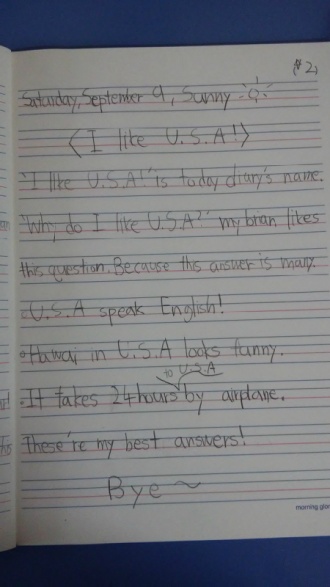 #2
Saturday, September 9, Sunny
<I like U.S.A!>
"I like U.S.A!" is today diary's name.
"Why do I like U.S.A?" my brain likes
this question. Because this answer is many.
U.S.A speak English!
Hawai in U.S.A looks funny.
to U.S.A
It takes 24 hours by airplane.
These're my best answers!
Bye~
morning glory